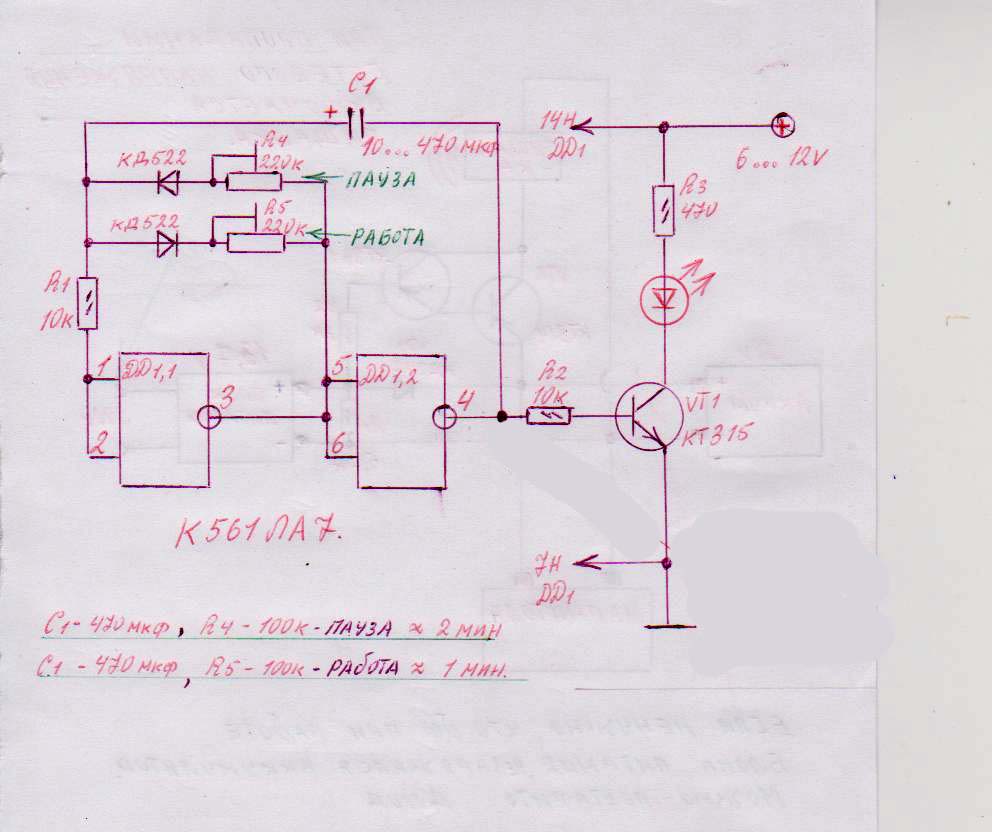 C1
+
10... 470 мкф
14Н
DD1
+
6... 12V
КД522
R4
220к
ПАУЗА
R3
470
КД522
R5
220к
РАБОТА
R1
10к
1
DD1,1
2
3
5
DD1,2
6
4
R2
10к
VT1
КТ315
К561ЛА7.
7Н
DD1
C1- 470 мкф, R4 - 100к - ПАУЗА ≈ 2 мин
C1 - 470 мкф, R5 - 100к - РАБОТА ≈ 1 мин.